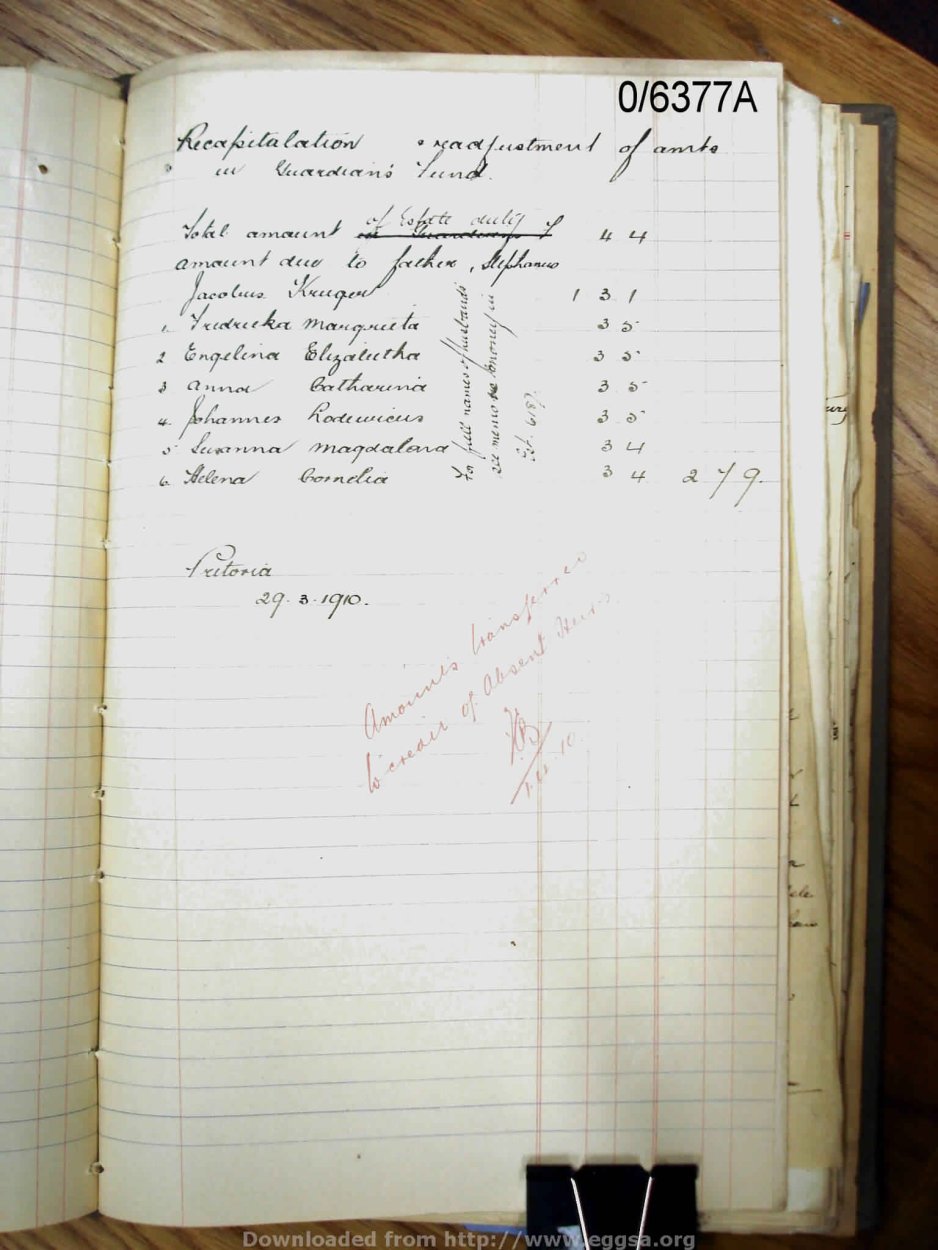 0/6377A
Recapitulation & readjustment of amts
in Guardian's Fund.
of Estate duty
Total amount in Guardian's F 4 4
amount due to father, Stephanus
Jacobus Kruger 1 3 1
1. Fredrieka Margrieta 3 5
2 Engelina Elizabetha 3 5
3 Anna Catharina 3 5
4. Johannes Lodewicus 3 5
5 Susanna Magdalena 3 4
6 Helena Cornelia 3 4 2 7 9.
For full names of husbands
see memo re money in
Est. 6187.
Pretoria
29.3.1910.
Amounts transferred
to credit of Absent Heirs
Downloaded from http://www.eggsa.org